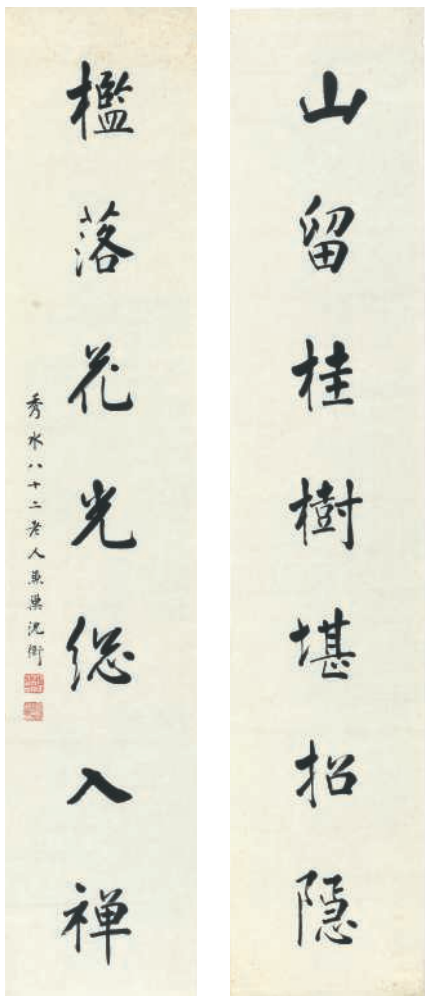 山留桂樹堪招隱
檻落花光總入禅
秀水八十二老人兼巢沈衛